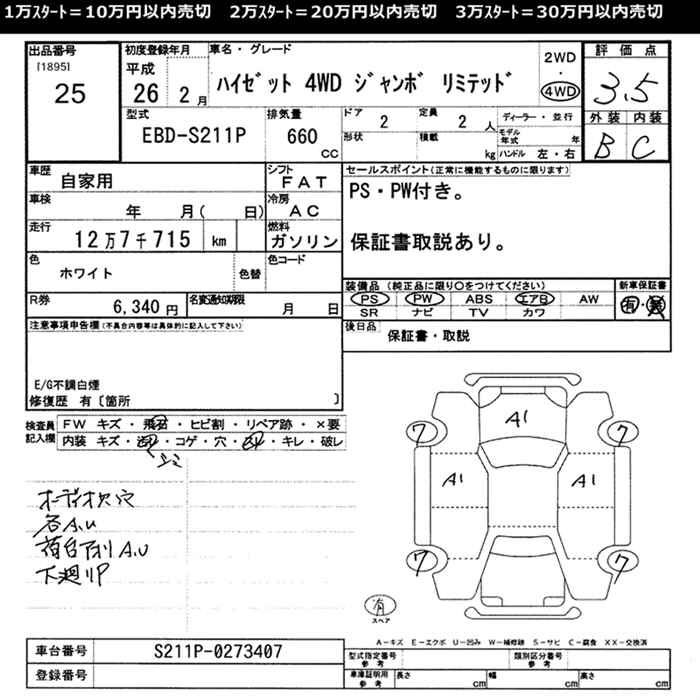 1万スタート＝10万円以内売切　2万スタート＝20万円以内売切　3万スタート＝30万円以内売切
出品番号
[1895]
25
初度登録年月
平成
26 2月
車名・グレード
ハイゼット 4WD ジャンボ リミテッド
2WD
・
4WD
評価点
3.5
外装 内装
B C
型式
EBD-S211P
排気量
660
CC
ドア
2
定員
2 人
形状
積載
kg
ディーラー・並行
モデル年式 年
ハンドル 左・右
車歴
自家用
シフト
FAT
車検
年 月( 日)
冷房
AC
走行
12万7千715 km
燃料
ガソリン
色
ホワイト
色替
色コード
R券
6,340円
名変通知期限
月 日
セールスポイント(正常に機能するものに限ります)
PS・PW付き。
保証書取説あり。
装備品(純正品に限り○をつけてください)
PS PW ABS エアB AW
SR ナビ TV カワ
新車保証書
有・無
後日品
保証書・取説
注意事項申告欄(不具合内容等は具体的に記入して下さい)
E/G不調白煙
修復歴 有〔箇所 〕
検査員記入欄
FW キズ・飛石・ヒビ割・リペア跡・×要
内装 キズ・汚れ・コゲ・穴・スレ・キレ・破レ
シミ
オーディオ欠穴
各A.U
荷台アオリA.U
下廻りP
A1
7 7
A1 A1
7 7
有
スペア
A－キズ E－エクボ U－凹み W－補修跡 S－サビ C－腐食 XX－交換済
車台番号
S211P-0273407
登録番号
型式指定番号
参考
類別区分番号
参考
車庫証明用
参考
長さ cm
幅 cm
高さ cm